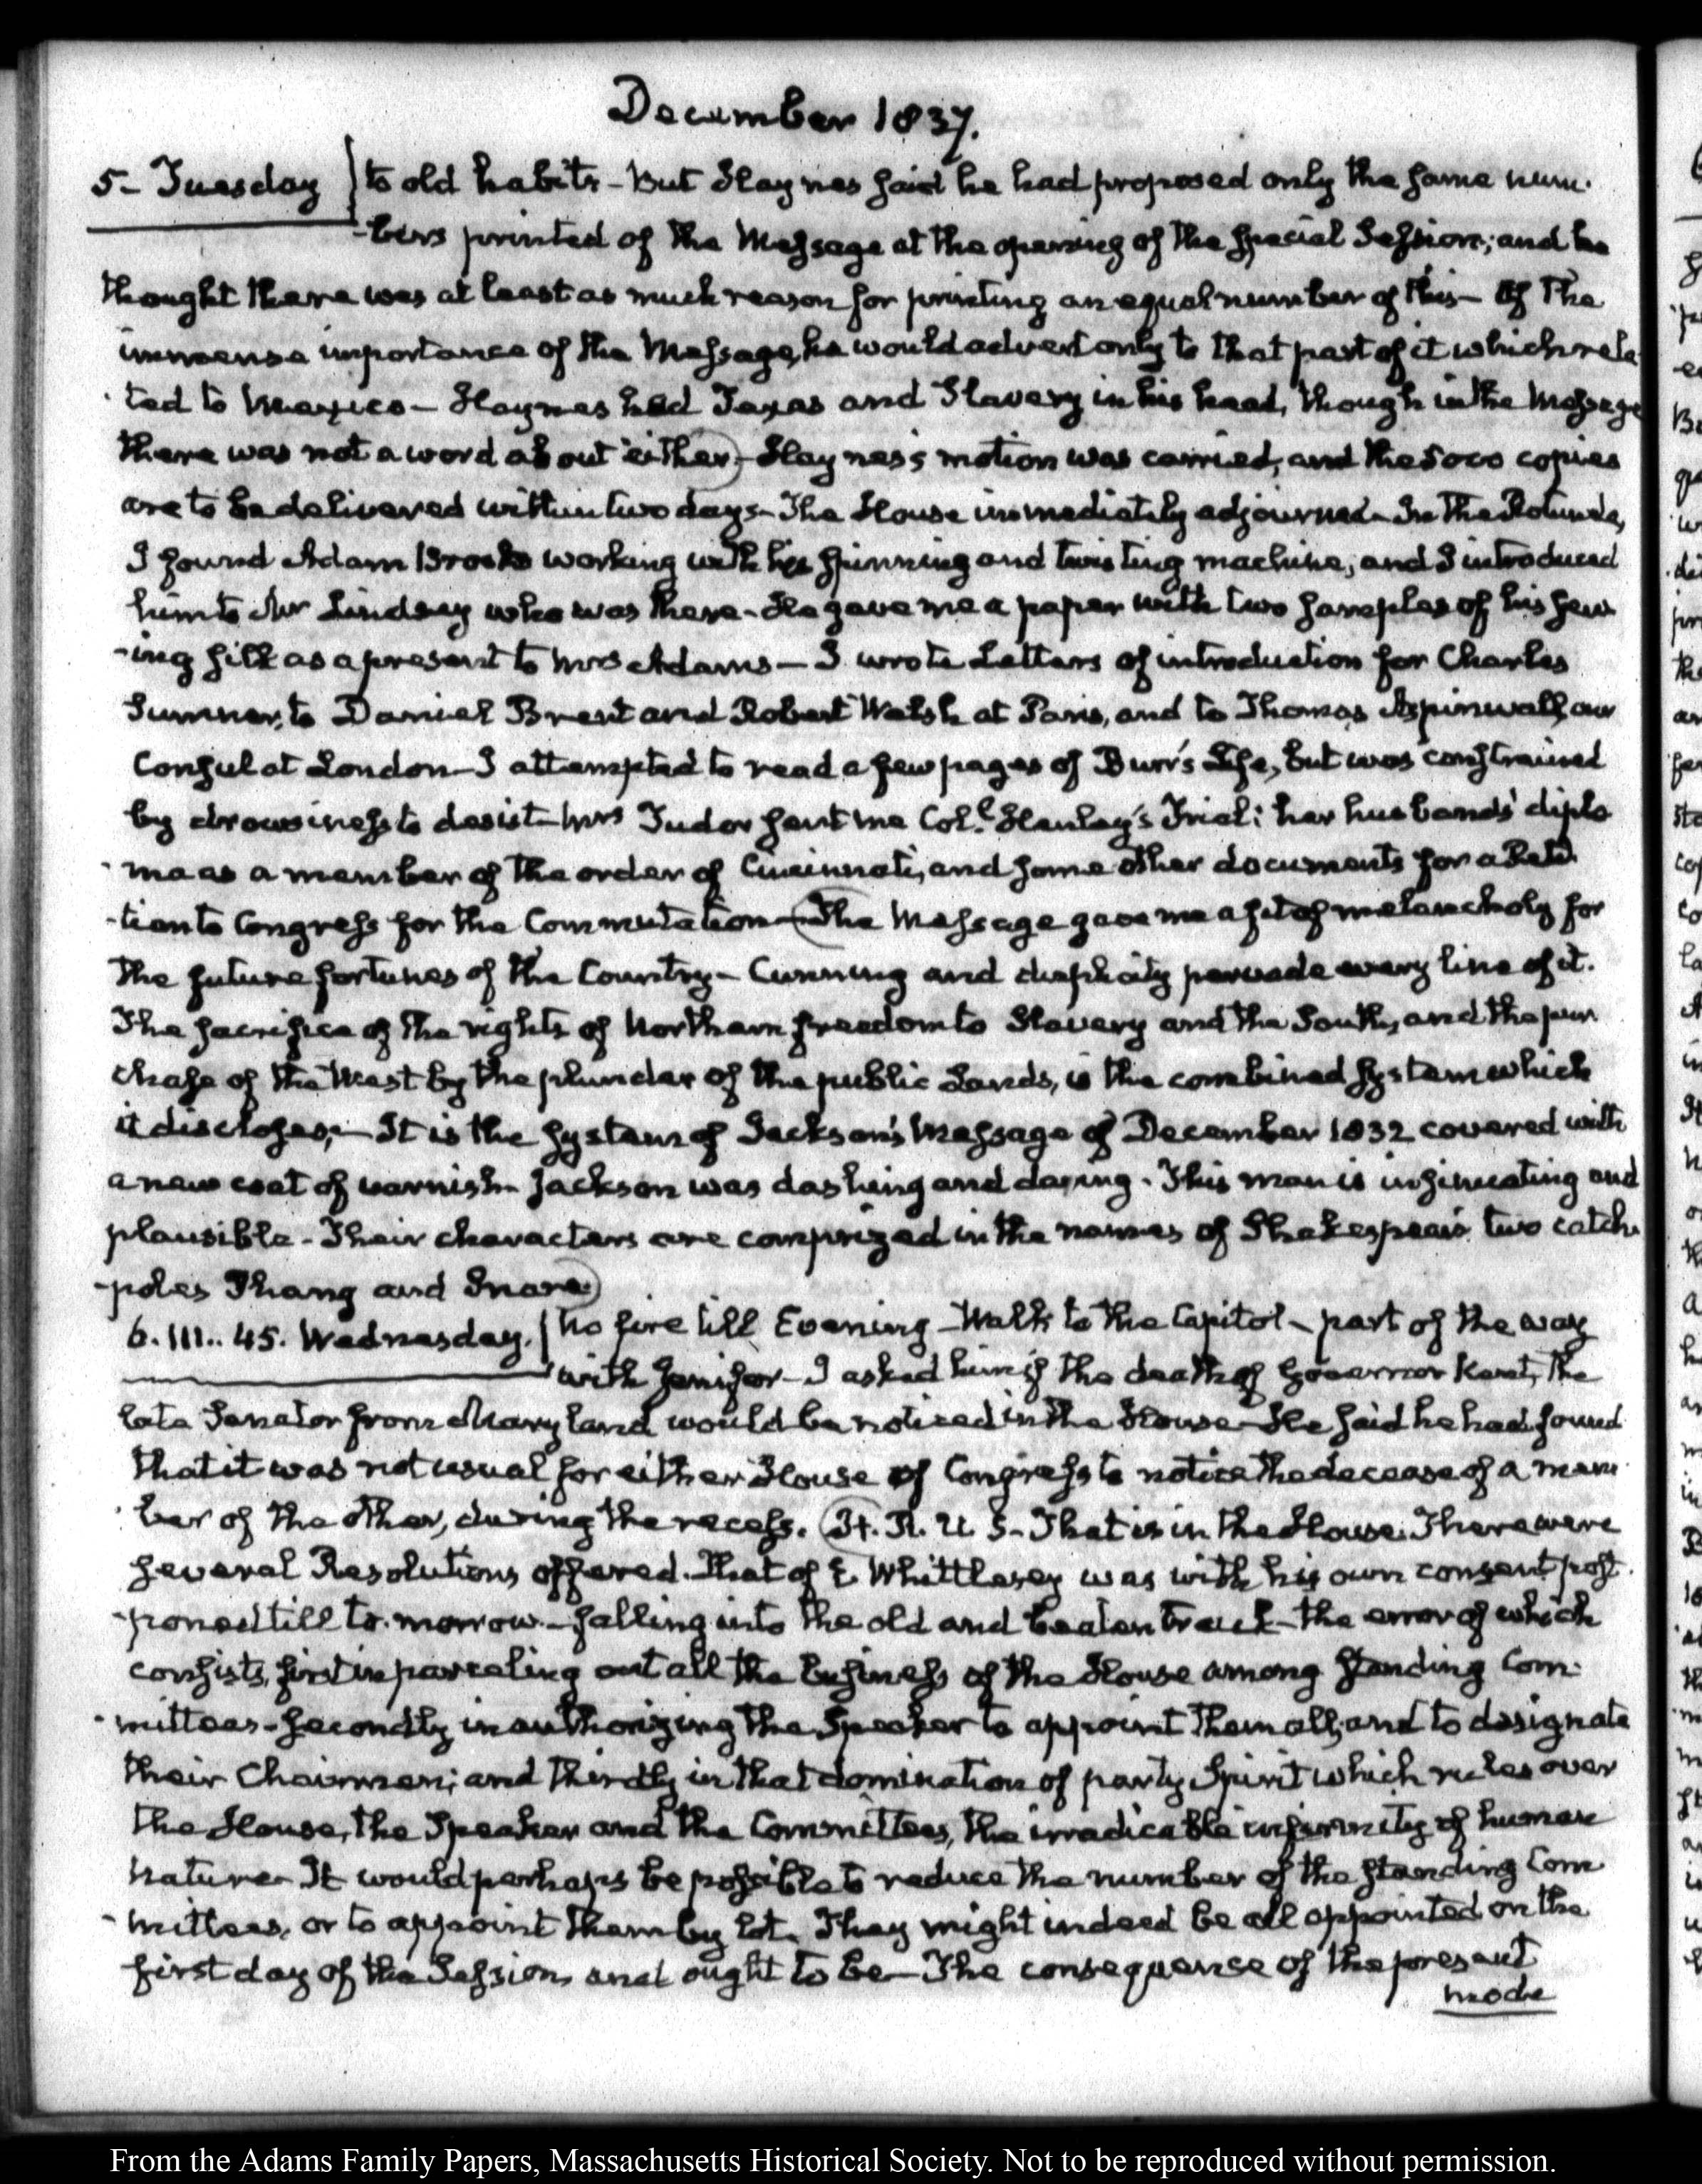 December 1837.
5- Tuesday to old habits - But Haynes said he had proposed only the same num-
-bers printed of the Message at the opening of the special Session; and he
thought there was at least as much reason for printing an equal number of this - Of the
immense importance of the Message, he would advert only to that part of it which rela-
ted to Mexico - Haynes had Texas and Slavery in his head, though in the Message
there was not a word about either - Haynes's motion was carried, and the 5000 copies
are to be delivered within two days - The House immediately adjourned - In the Rotunda,
I found Adam Brooks working with his spinning and twisting machine, and I introduced
him to Mr Lindsay who was there - He gave me a paper with two samples of his sew-
-ing silk as a present to Mrs Adams - I wrote Letters of introduction for Charles
Sumner, to Daniel Brent and Robert Walsh at Paris, and to Thomas Aspinwall, our
Consul at London - I attempted to read a few pages of Burr's Life, but was constrained
by drowsiness to desist - Mrs Tudor sent me Coll. Henley's Trial; her husband's diplo-
-ma as a member of the order of Cincinnati, and some other documents for a Peti-
-tion to Congress for the Commutation - The Message gave me a fit of melancholy for
the future fortunes of the Country - Cunning and duplicity pervade every line of it.
The sacrifice of the rights of Northern freedom to Slavery and the South, and the pur-
chase of the West by the plunder of the public Lands, is the combined system which
it discloses; - It is the system of Jackson's Message of December 1832 covered with
a new coat of varnish - Jackson was dashing and daring. This man is insinuating and
plausible - Their characters are comprized in the names of Shakespear's two catch-
-poles Phang and Snare.
6. III.. 45. Wednesday. No fire till Evening - Walk to the Capitol - part of the way
with Jenifer - I asked him if the death of Governor Kent, the
late Senator from Maryland would be noticed in the House - He said he had found
that it was not usual for either House of Congress to notice the decease of a mem-
ber of the other, during the recess. H. R. U S - That is in the House. There were
several Resolutions offered. That of E. Whittlesey was with his own consent post-
-poned till to-morrow - falling into the old and beaten track - the error of which
consists, first in parcelling out all the business of the House among standing Com-
-mittees - secondly in authorizing the Speaker to appoint them all, and to designate
their Chairmen; and thirdly in that domination of party Spirit which rules over
the House, the Speaker and the Committees, the irradicable infirmity of human
nature - It would perhaps be possible to reduce the number of the standing Com-
-mittees, or to appoint them by lot. They might indeed be all appointed on the
first day of the Session, and ought to be - The consequence of the present
mode
From the Adams Family Papers, Massachusetts Historical Society. Not to be reproduced without permission.